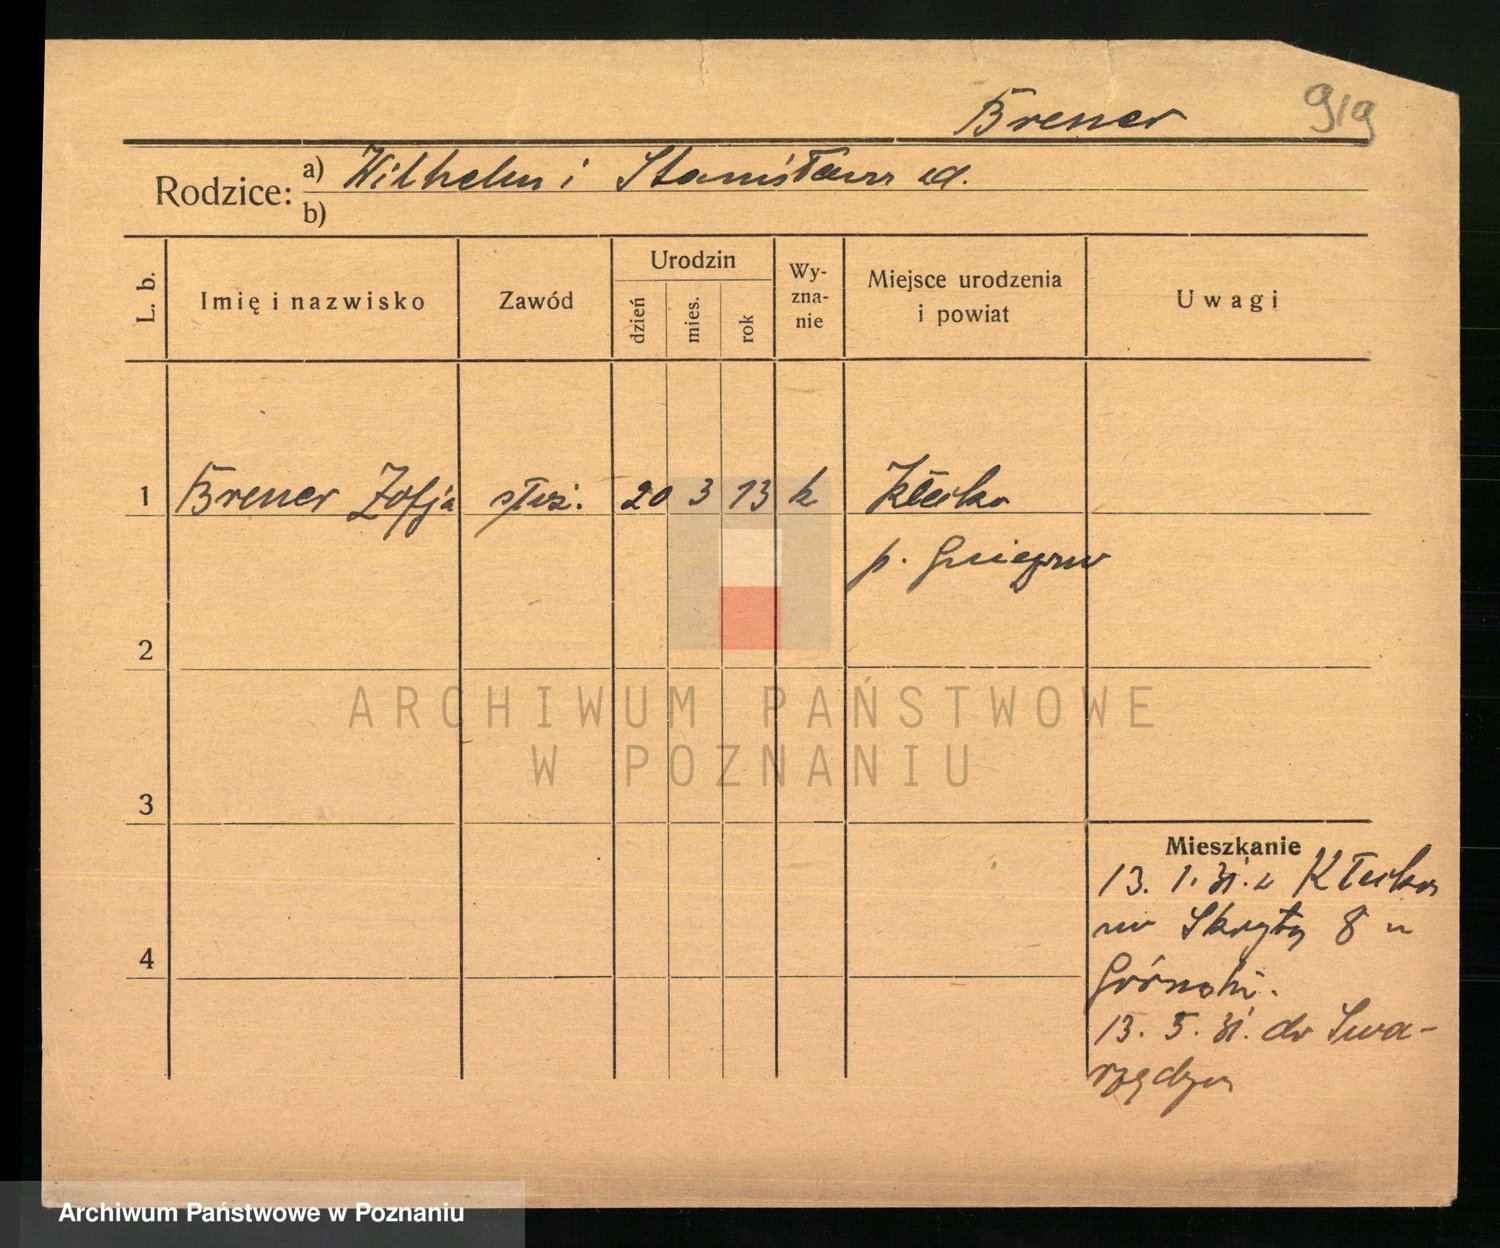 Brener 919
Rodzice: a) Wilhelm i Stanisława
b)
L. b.
Imię i nazwisko
Zawód
Urodzin
dzień
mies.
rok
Wy-
zna-
nie
Miejsce urodzenia
i powiat
Uwagi
1 Brener Zofja służ. 20 3 13 k Kłecko
p. Gniezno
2
3
4
Mieszkanie
13. 1. 31. z Kłecka
na Skrytą 8 u
Górnski.
13. 5. 31. do Swa-
rzędza
ARCHIWUM PAŃSTWOWE
W POZNANIU
Archiwum Państwowe w Poznaniu